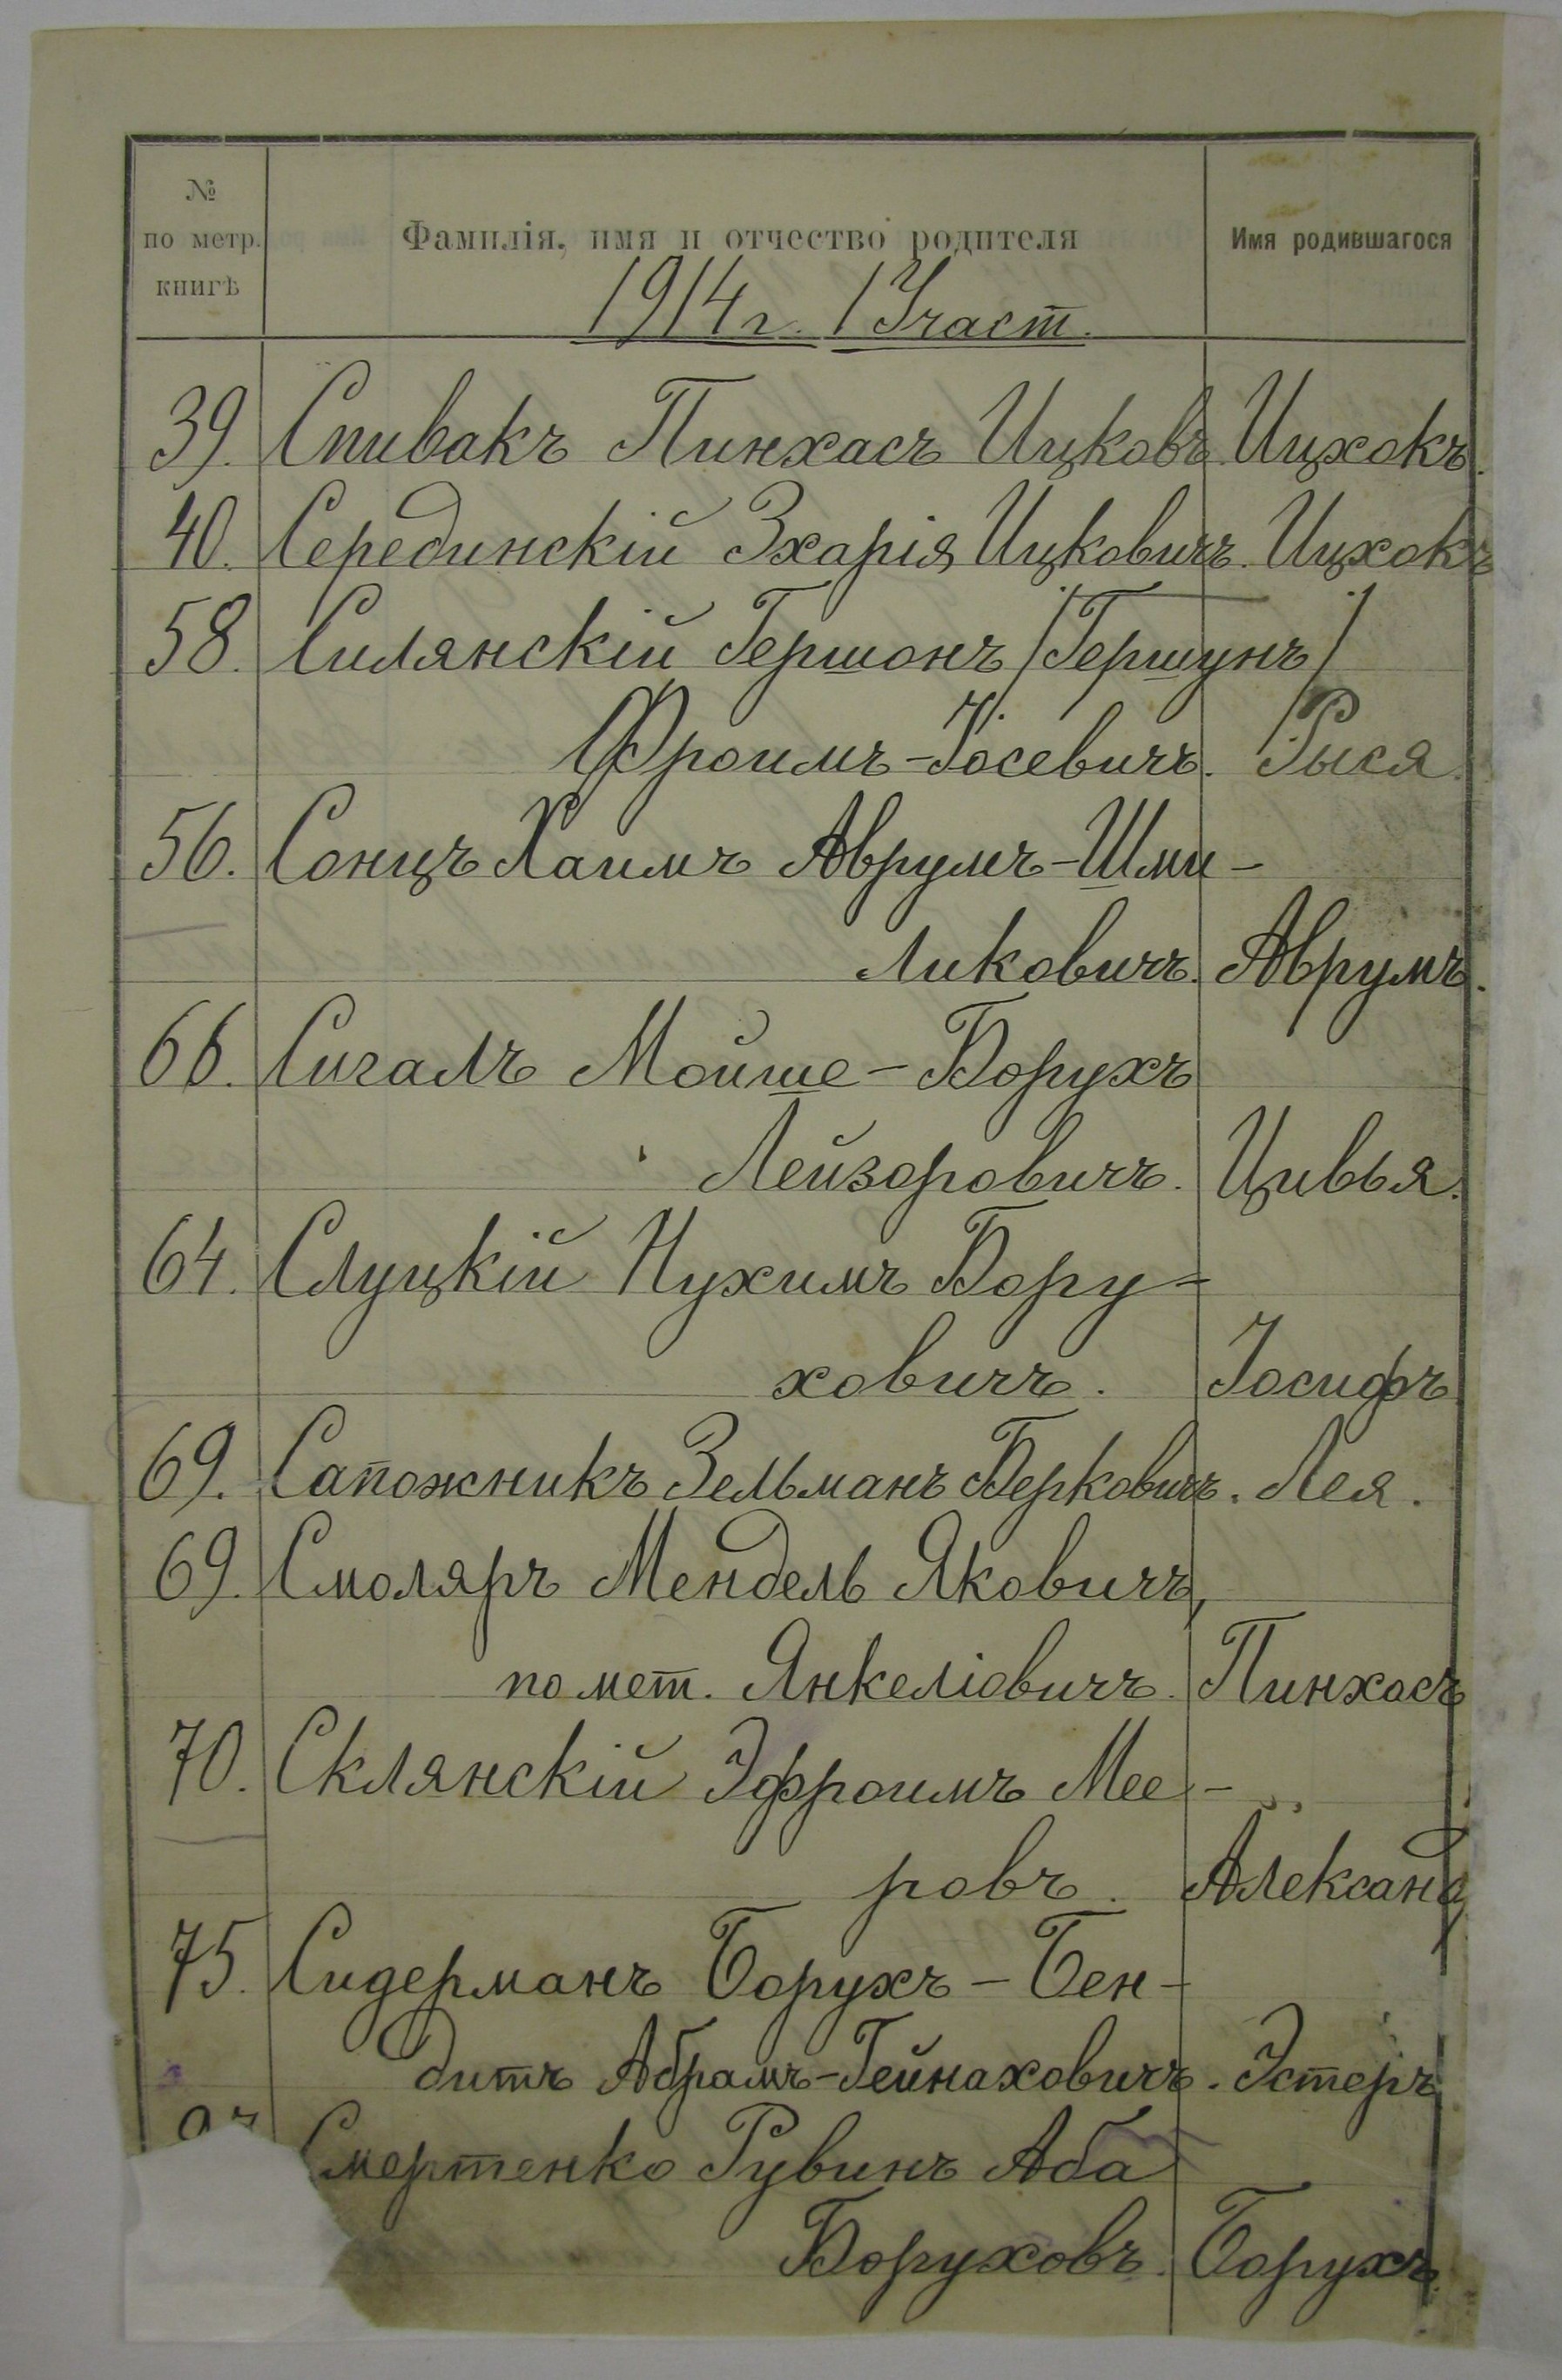 №
по метр.
книгѣ
Фамилія, имя и отчество родителя
Имя родившагося
1914 г. 1 Участ.
39. Спивакъ Пинхасъ Ицковъ. Ицхокъ.
40. Серединскій Зхарія Ицковичъ. Ицхокъ
58. Силянскій Гершонъ /Гершунъ/
Фроимъ-Іосевичъ. Рыся.
56. Сонцъ Хаимъ Аврумъ-Шми-
ликовичъ. Аврумъ.
66. Сигалъ Мойше-Борухъ
Лейзоровичъ. Цивья.
64. Слуцкій Нухимъ Бору-
ховичъ. Іосифъ
69. Сапожникъ Зельманъ Берковичъ. Лея.
69. Смоляръ Мендель Яковичъ,
по мет. Янкеліовичъ. Пинхасъ
70. Склянскій Эфроимъ Мее-
ровъ. Александ
75. Сидерманъ Борухъ-Бен-
дитъ Абрамъ-Гейнаховичъ. Эстеръ
Смертенко Рувинъ Аба
Боруховъ. Борухъ.